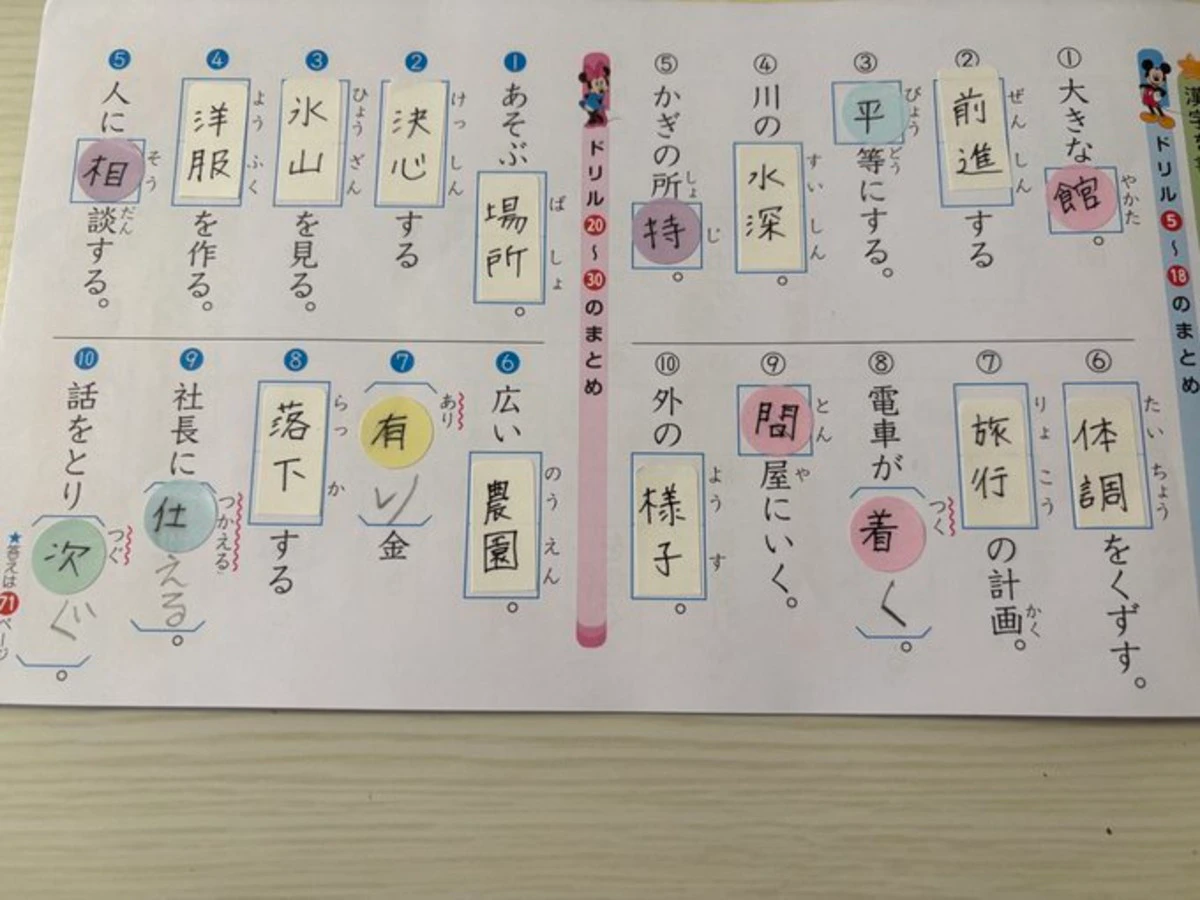 漢字
ドリル5~18のまとめ
①大きな館。
やかた
②前進する
ぜんしん
③平等にする。
びょうどう
④川の水深。
すいしん
⑤かぎの所持。
しょじ
⑥体調をくずす。
たいちょう
⑦旅行の計画。
りょこう
かく
⑧電車が着く。
つく
⑨問屋にいく。
とんや
⑩外の様子。
ようす
ドリル20~30のまとめ
❶あそぶ場所。
ばしょ
❷決心する
けっしん
❸氷山を見る。
ひょうざん
❹洋服を作る。
ようふく
❺人に相談する。
そうだん
❻広い農園。
のうえん
❼有り金
あり
❽落下する
らっか
❾社長に仕える。
つかえる
❿話をとり次ぐ。
つぐ
★答えは71ページ